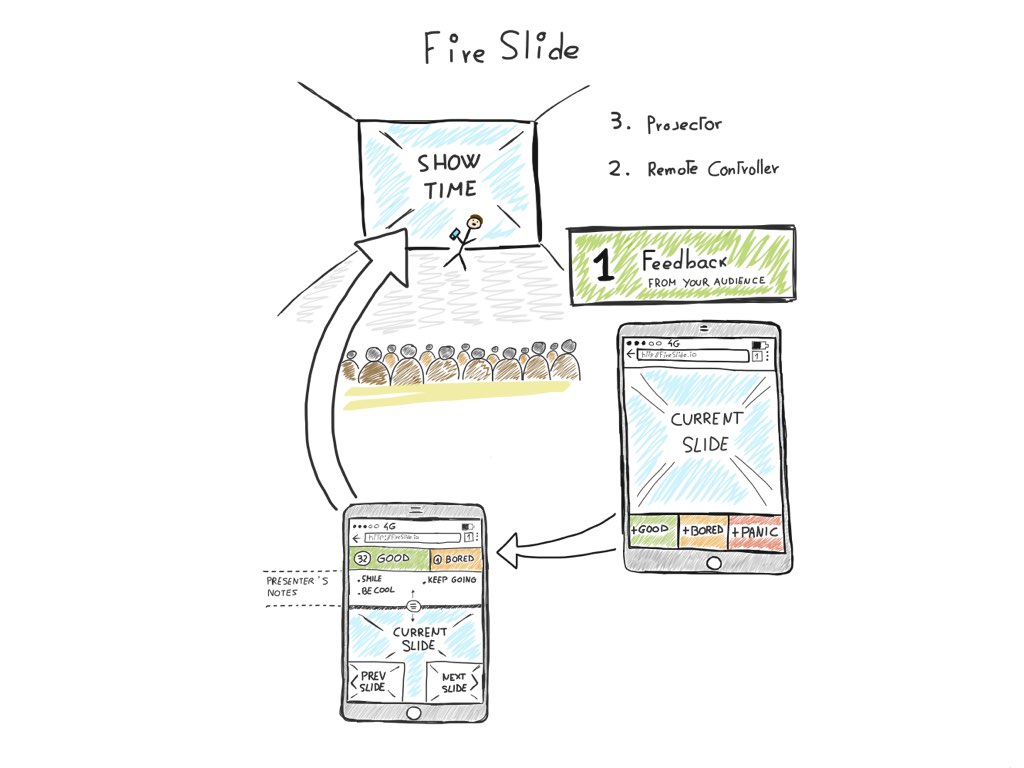 Fire Slide
SHOW
TIME
3. Projector
2. Remote Controller
1 Feedback
FROM YOUR AUDIENCE
4G
http://FireSlide.io
1
CURRENT
SLIDE
+GOOD
+BORED
+PANIC
4G
http://FireSlide.io
1
32 GOOD
4 BORED
PRESENTER'S
NOTES
. SMILE
. BE COOL
. KEEP GOING
CURRENT
SLIDE
PREV
SLIDE
NEXT
SLIDE